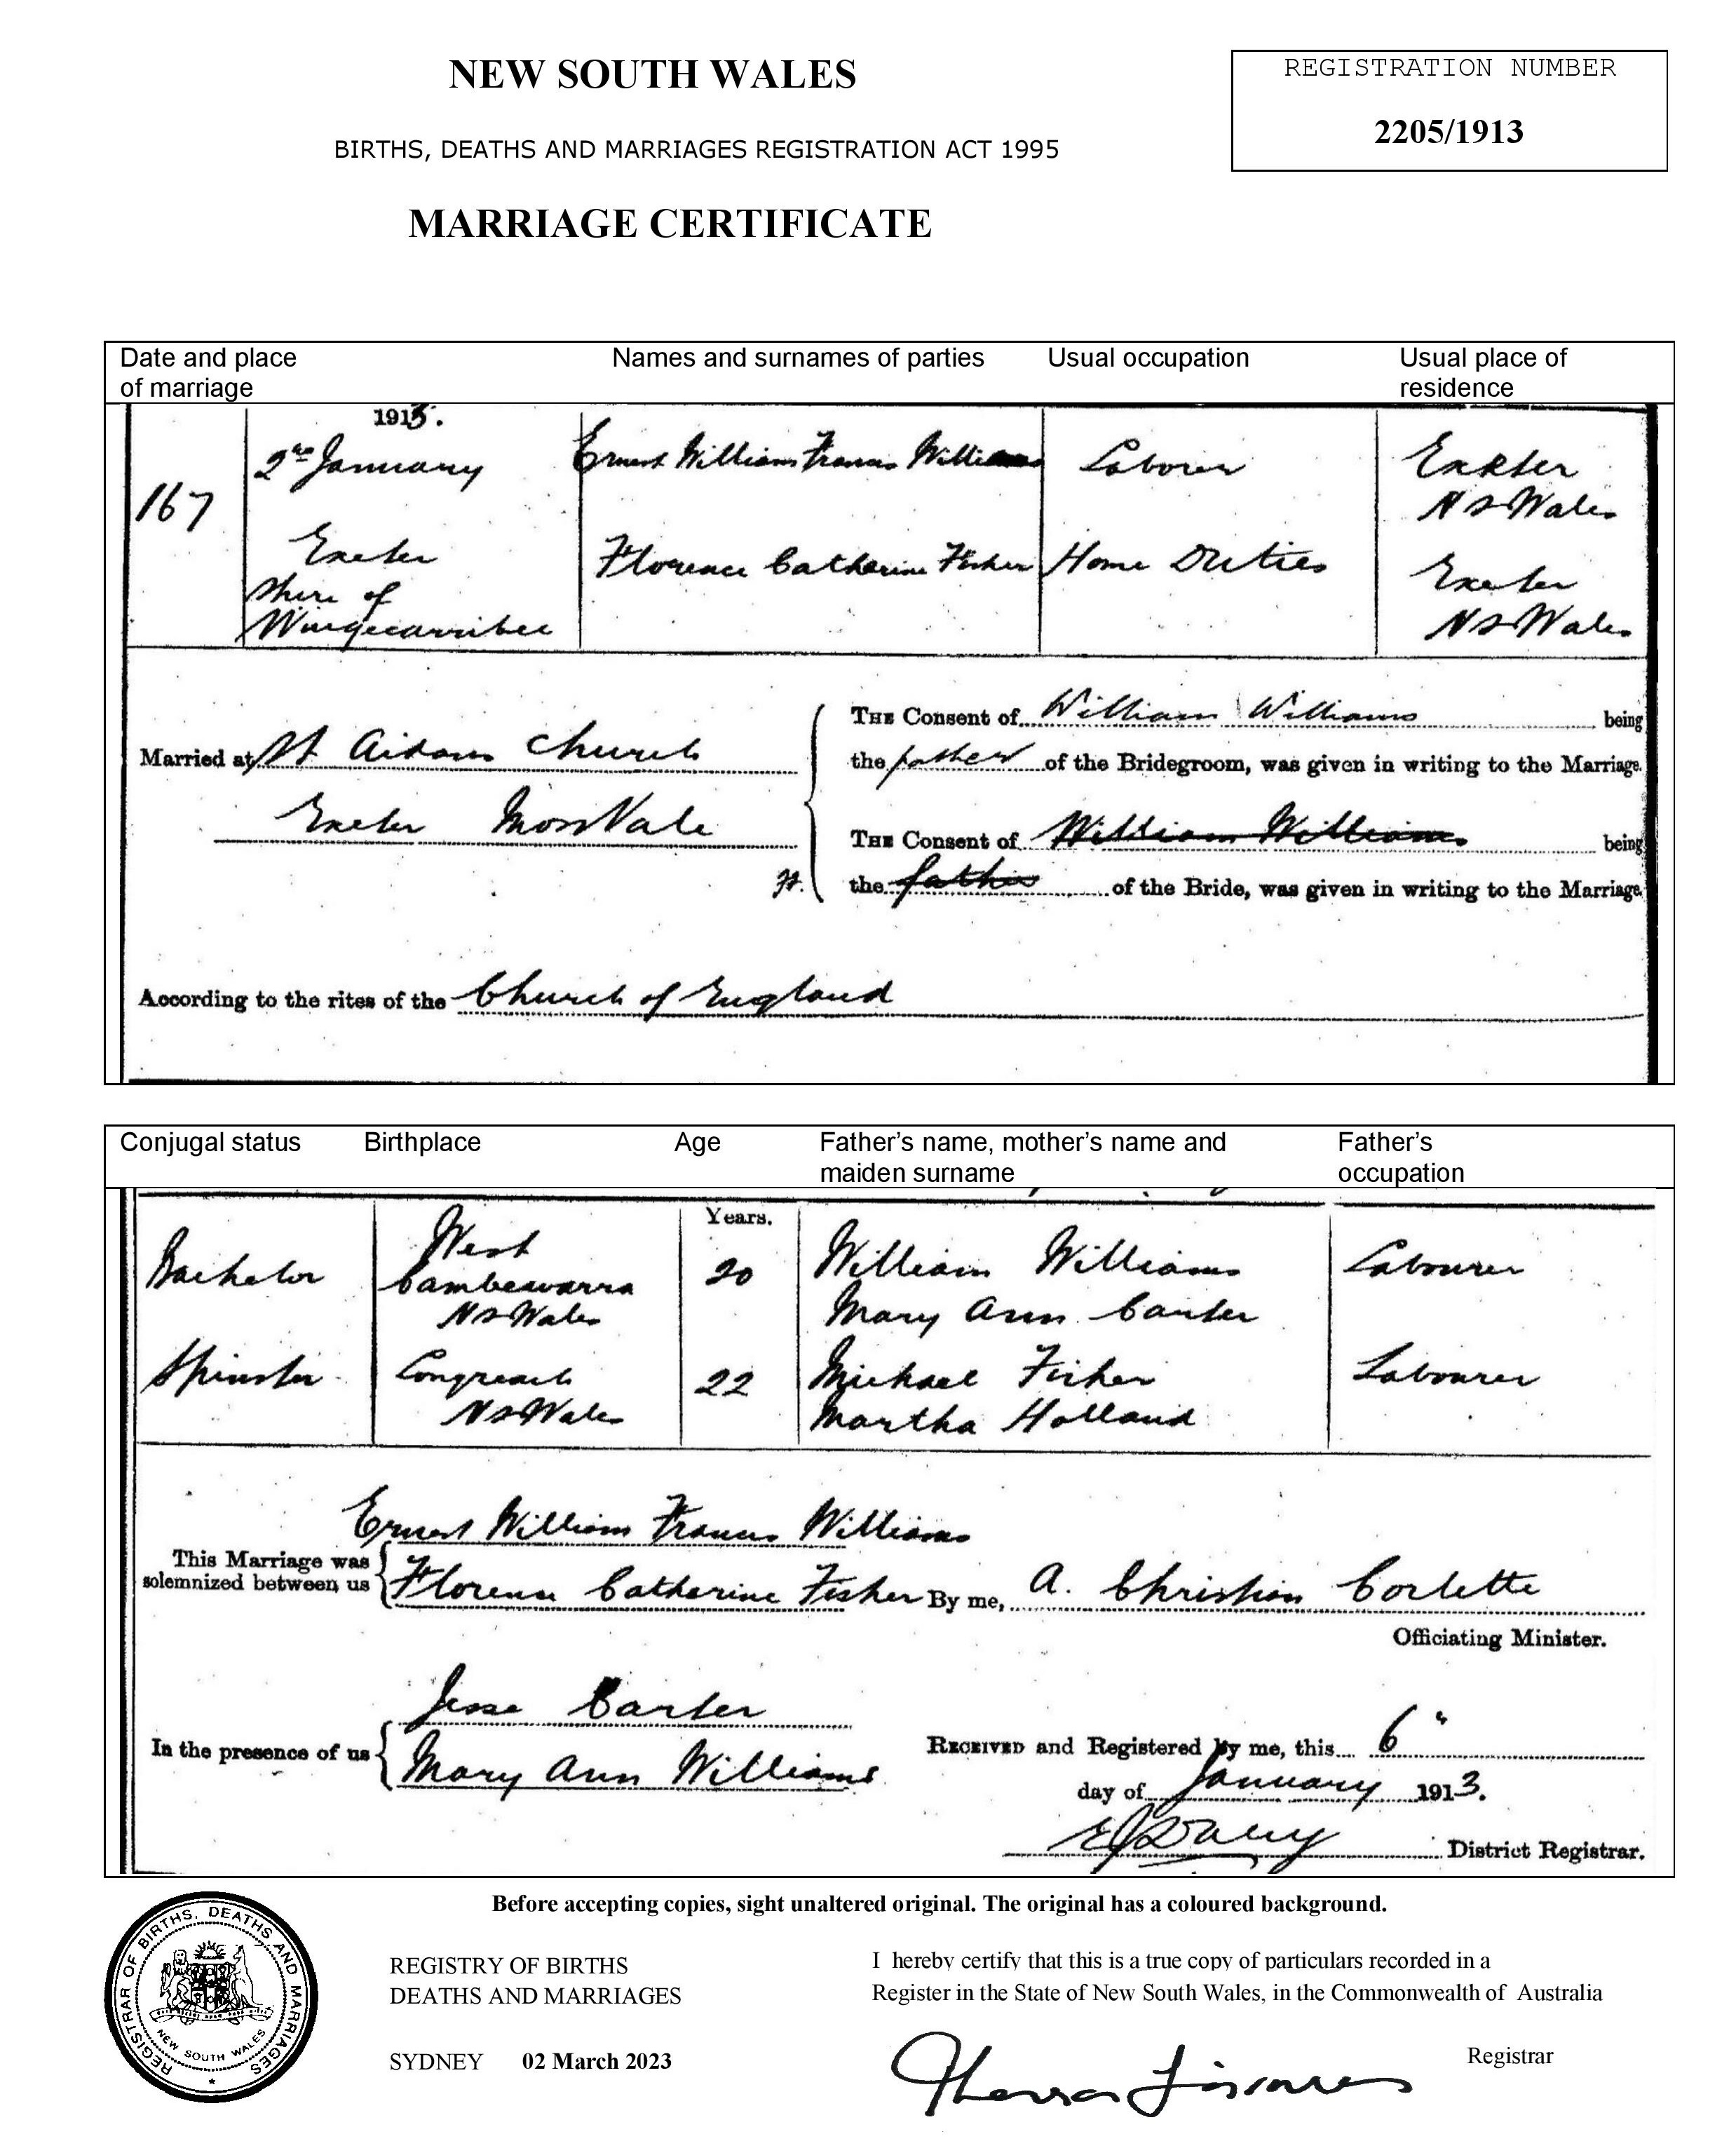 NEW SOUTH WALES
REGISTRATION NUMBER
2205/1913
BIRTHS, DEATHS AND MARRIAGES REGISTRATION ACT 1995
MARRIAGE CERTIFICATE
Date and place of marriage
Names and surnames of parties
Usual occupation
Usual place of residence
1913.
167
2nd January
Exeter
Shire of
Wingecarribee
Ernest William Francis Williams
Laborer
Exeter
N S Wales
Florence Catherine Fisher
Home Duties
Exeter
N S Wales
Married at St Aidans Church
Exeter Moss Vale
THE Consent of William Williams being
the father of the Bridegroom, was given in writing to the Marriage.
THE Consent of William Williams being
the father of the Bride, was given in writing to the Marriage.
According to the rites of the Church of England
Conjugal status
Birthplace
Age
Father's name, mother's name and maiden surname
Father's occupation
Years.
Bachelor
West
Cambewarra
N S Wales
20
William Williams
Mary Ann Carter
Labourer
Spinster
N S Wales
22
Michael Fisher
Martha Holland
Labourer
Ernest William Francis Williams
This Marriage was solemnized between us
Florence Catherine Fisher By me, A. Christian Corlette
Officiating Minister.
Jesse Carter
In the presence of us
Mary Ann Williams
RECEIVED and Registered by me, this 6"
day of January 1913.
District Registrar.
Before accepting copies, sight unaltered original. The original has a coloured background.
REGISTRAR OF BIRTHS, DEATHS AND MARRIAGES
NEW SOUTH WALES
REGISTRY OF BIRTHS
DEATHS AND MARRIAGES
SYDNEY 02 March 2023
I hereby certify that this is a true copy of particulars recorded in a
Register in the State of New South Wales, in the Commonwealth of Australia
Registrar